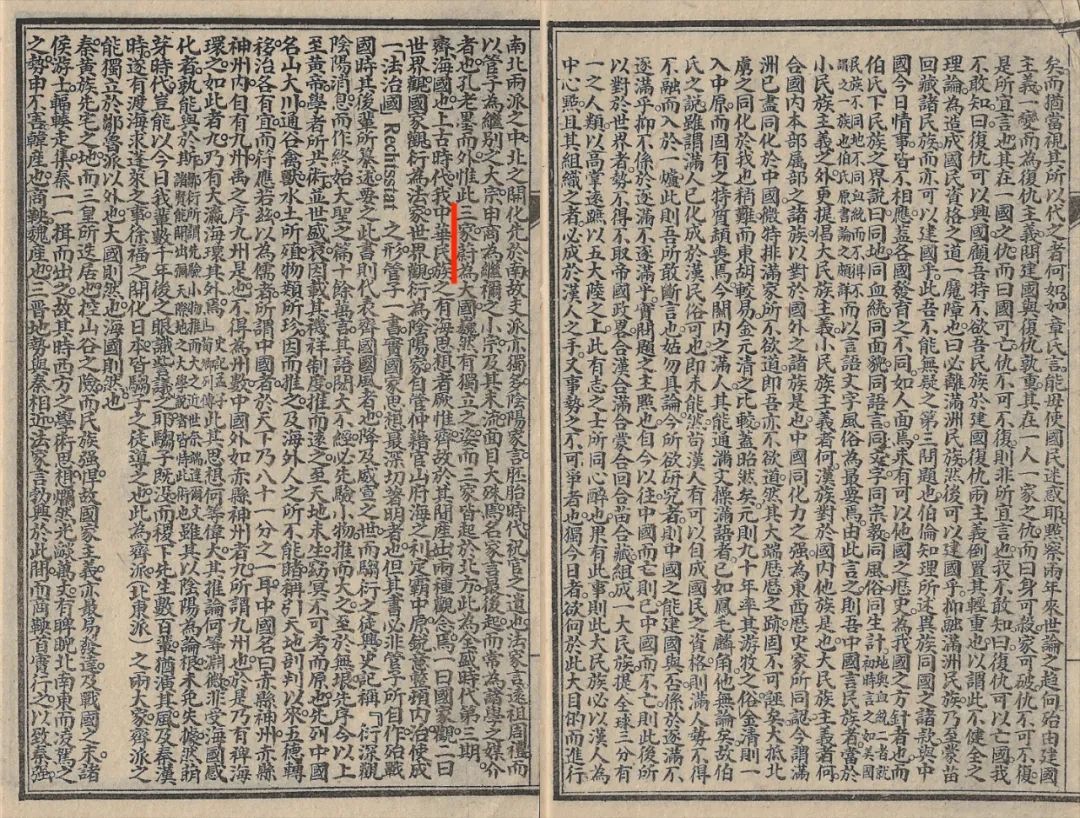 矣而猶當視其所以代之者何如如章氏言能毋使國民迷惑耶點察兩年來世論之趨向殆由建國
主義一變而為復仇主義問建國與復仇孰重其在一人一家之仇而曰身可殺家可破仇不可不復
是所宜言也其在一國之仇而曰國可亡仇不可不復則非所宜言也我不敢知曰復仇可以亡國我
不敢知曰復仇可以興國顧吾特不欲吾民族於建國復仇兩主義倒置其輕重也以謂此不健全之
理論為造成國民資格之道一魔障也曰必離滿洲民族然後可以建國乎抑融滿洲民族乃至蒙苗
回藏諸民族而亦可以建國乎此吾不能無疑之第三問題也伯倫知理所述異族同國之諸款與中
國今日情事皆不相應蓋各國發育之不同如人面焉未有可以他國之歷史為我國之方針者也而
伯氏下民族之界說曰同地同血統同面貌同語言同文字同宗教同風俗同生計地與血統二者就初時言之如美國
民族不同地不同血統而不得不謂之一族也伯氏原書論之頗詳而以言語文字風俗為最要焉由此言之則吾中國言民族者當於
小民族主義之外更提倡大民族主義小民族主義者何漢族對於國內他族是也大民族主義者何
合國內本部屬部之諸族以對於國外之諸族是也中國同化力之強為東西歷史家所同認今謂滿
洲已盡同化於中國微特排滿家所不欲道即吾亦不欲道然其大端歷歷之跡固不可誣矣大抵北
虜之同化於我也稍難而東胡較易金元清之比較蓋昭然矣元則九十年率其游牧之俗金濡則一
入中原而固有之特質頓喪焉今關內之滿人其能通滿文操滿語者已如鳳毛麟角他無論矣故伯
氏之說雖謂滿人已化成於漢民俗可也即未能然苟漢人有可以自成國民之資格則滿人勢不得
不融而入於一爐此則吾所敢斷言也姑勿具論今所欲研究者則中國之能建國與否係於逐滿不
逐滿乎抑不係於逐滿不逐滿乎實問題之主點也自今以往中國而亡則已中國而不亡則此後所
以對於世界者勢不得不取帝國政畧合漢合滿合蒙合回合苗合藏組成一大民族提全球三分有
一之人類以高掌遠蹠以五大陸之上此有志之士所同心醉也果有此事則此大民族必以漢人為
中心點且其組織之者必成於漢人之手又事勢之不可爭者也獨今日者欲向於此大目的而進行
南北兩派之中北之開化先於南故支派亦獨多陰陽家言胚胎時代祝官之遺也法家言遠祖周禮而
以管子為繼別之大宗申商為繼禰之小宗及其末流面目大殊焉名家言最後起而常為諸學之媒介
者也孔老墨而外惟此三家蔚為大國巍然有獨立之姿而三家皆起於北方此為全盛時代第三期
齊海國也上古時代我中華民族之有海思想者厥惟齊故於其間產出兩種觀念焉一曰國家觀二曰
世界觀國家觀衍為法家世界觀衍為陰陽家自管仲藉官山府海之利定霸中原銳意整頓內治使成
一「法治國」Rechtsstat 之形管子一書實國家思想最深切著明者也但其書必非管子所自作殆戰
國時其後輩所纂述要之此書則代表齊國國風者也降及威宣之世而騶衍之徒興史記稱「衍深觀
陰陽消息而作終始大聖之篇十餘萬言其語閎大不經必先驗小物推而大之至於無垠先序今以上
至黃帝學者所共術並世盛衰因載其禨祥制度推而遠之至天地未生窈冥不可考而原也先列中國
名山大川通谷禽獸水土所殖物類所珍因而推之及海外人之所不能睹稱引天地剖判以來五德轉
移治各有宜而符應若茲以為儒者所謂中國者於天下乃八十一分之一耳中國名曰赤縣神州赤縣
神州內自有九州禹之序九州是也不得為州數中國外如赤縣神州者九所謂九州也於是乃有裨海
環之如此者九乃有大瀛海環其外焉」史記孟子荀卿列傳此其思想何等偉大其推論何等淵微非受海國感
化者孰能與於斯鄒衍所謂先驗小物推而大之近世奈端達爾文諸賢能開出彌天際地之大學說者皆恃此術也雖其以陰陽為論根未免失據然萌
芽時代豈能以今日我輩數千年後之眼識訾議之耶騶子既沒而稷下先生數百輩猶演其風及秦漢
時遂有渡海求蓬萊之事徐福之開化日本皆騶子之徒導之也此為齊派北東派之兩大家齊派之
能獨立於鄒魯派以外也大國則然也海國則然也
秦黃族先宅之地而三皇所迭居也控山谷之險而民族強悍故國家主義亦最易發達及戰國之末諸
侯游士輻輳走集秦一一揖而出之故其時西方之學術思想爛然光燄萬丈有睥睨北南東而凌駕之
之勢申不害韓產也商鞅魏產也三晉地勢與秦相近法家言勃興於此間而商鞅首實行之以致秦強